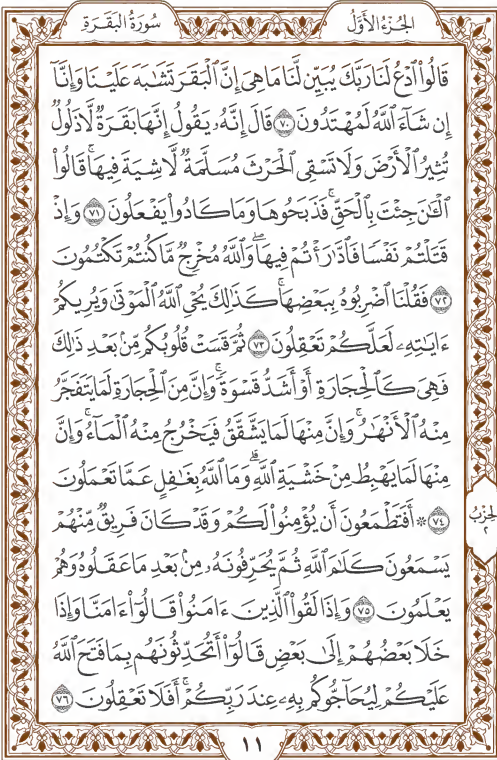 الجُزْءُ الأَوَّلُ
سُورَةُ البَقَرَةِ
قَالُواْ ٱدْعُ لَنَا رَبَّكَ يُبَيِّن لَّنَا مَا هِىَ إِنَّ ٱلْبَقَرَ تَشَٰبَهَ عَلَيْنَا وَإِنَّآ
إِن شَآءَ ٱللَّهُ لَمُهْتَدُونَ ٧٠ قَالَ إِنَّهُۥ يَقُولُ إِنَّهَا بَقَرَةٌ لَّا ذَلُولٌ
تُثِيرُ ٱلْأَرْضَ وَلَا تَسْقِى ٱلْحَرْثَ مُسَلَّمَةٌ لَّا شِيَةَ فِيهَاۚ قَالُواْ
ٱلْـَٰٔنَ جِئْتَ بِٱلْحَقِّۚ فَذَبَحُوهَا وَمَا كَادُواْ يَفْعَلُونَ ٧١ وَإِذْ
قَتَلْتُمْ نَفْسًا فَٱدَّٰرَْٰٔتُمْ فِيهَاۖ وَٱللَّهُ مُخْرِجٌ مَّا كُنتُمْ تَكْتُمُونَ
٧٢ فَقُلْنَا ٱضْرِبُوهُ بِبَعْضِهَاۚ كَذَٰلِكَ يُحْىِ ٱللَّهُ ٱلْمَوْتَىٰ وَيُرِيكُمْ
ءَايَٰتِهِۦ لَعَلَّكُمْ تَعْقِلُونَ ٧٣ ثُمَّ قَسَتْ قُلُوبُكُم مِّنۢ بَعْدِ ذَٰلِكَ
فَهِىَ كَٱلْحِجَارَةِ أَوْ أَشَدُّ قَسْوَةًۚ وَإِنَّ مِنَ ٱلْحِجَارَةِ لَمَا يَتَفَجَّرُ
مِنْهُ ٱلْأَنْهَٰرُۚ وَإِنَّ مِنْهَا لَمَا يَشَّقَّقُ فَيَخْرُجُ مِنْهُ ٱلْمَآءُۚ وَإِنَّ
مِنْهَا لَمَا يَهْبِطُ مِنْ خَشْيَةِ ٱللَّهِۗ وَمَا ٱللَّهُ بِغَٰفِلٍ عَمَّا تَعْمَلُونَ
٧٤ ۞ أَفَتَطْمَعُونَ أَن يُؤْمِنُواْ لَكُمْ وَقَدْ كَانَ فَرِيقٌ مِّنْهُمْ
يَسْمَعُونَ كَلَٰمَ ٱللَّهِ ثُمَّ يُحَرِّفُونَهُۥ مِنۢ بَعْدِ مَا عَقَلُوهُ وَهُمْ
يَعْلَمُونَ ٧٥ وَإِذَا لَقُواْ ٱلَّذِينَ ءَامَنُواْ قَالُوٓاْ ءَامَنَّا وَإِذَا
خَلَا بَعْضُهُمْ إِلَىٰ بَعْضٍ قَالُوٓاْ أَتُحَدِّثُونَهُم بِمَا فَتَحَ ٱللَّهُ
عَلَيْكُمْ لِيُحَآجُّوكُم بِهِۦ عِندَ رَبِّكُمْۚ أَفَلَا تَعْقِلُونَ ٧٦
لحِزْبُ
٢
١١